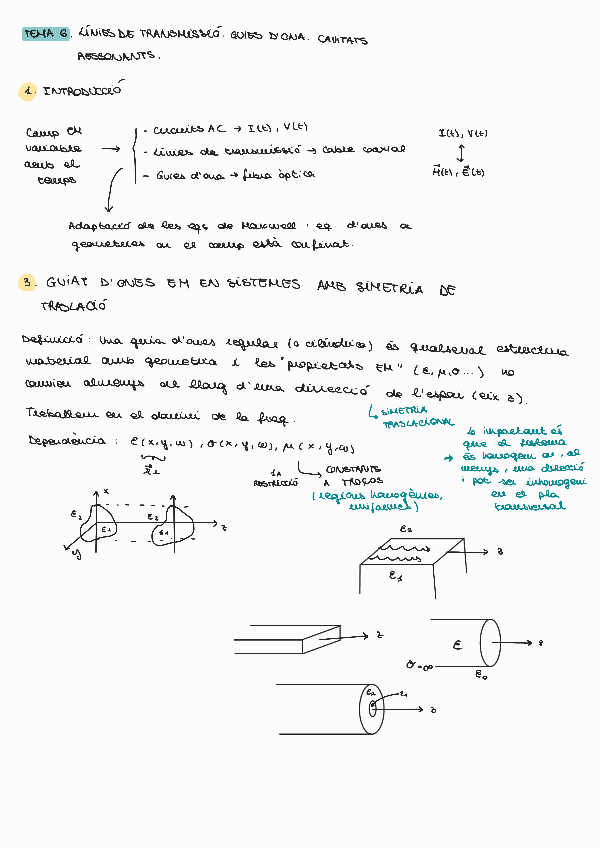 TEMA 6. LÍNIES DE TRANSMISSIÓ. GUIES D'ONA. CAVITATS
RESSONANTS.
1. INTRODUCCIÓ
Camp EM
variable
amb el
temps
- Circuits AC → I(t), V(t)
- Línies de transmissió → cable coaxial
- Guies d'ona → fibra òptica
I(t), V(t)
H(t), E(t)
Adaptació de les eqs de Maxwell i eq d'ones a
geometries on el camp està confinat.
3. GUIAT D'ONES EM EN SISTEMES AMB SIMETRIA DE
TRASLACIÓ
Definició: Una guia d'ones regular (o cilíndrica) és qualsevol estructura
material amb geometria i les "propietats EM" (ε, μ, σ...) no
canvien almenys al llarg d'una direcció de l'espai (eix z).
SIMETRIA
TRASLACIONAL
Treballem en el domini de la freq.
Dependència: ε(x,y,ω), σ(x,y,ω), μ(x,y,ω)
1A
RESTRICCIÓ
CONSTANTS
A TROÇOS
(regions homogènies,
uniformes)
Lo important és
que el sistema
→ és homogeni en, al
menys, una direcció
i pot ser inhomogeni
en el pla
transversal
x
ε2
ε1
ε2
ε1
z
y
ε2
z
ε1
z
ε
z
σ=∞
ε0
ε2
ε1
z